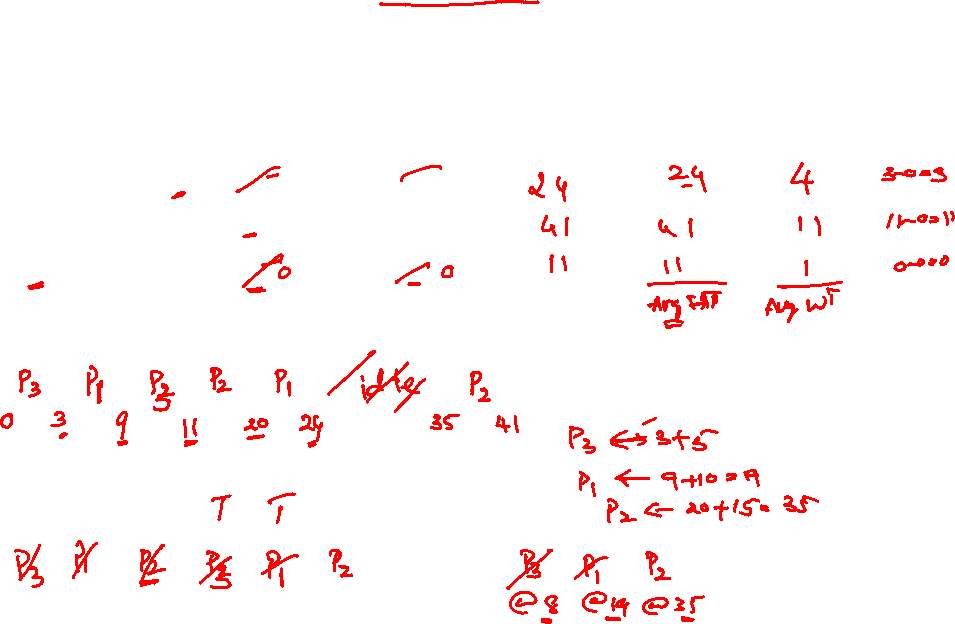 24 24 4 3-0=3
41 41 11 11-0=11
0 0 11 11 1 0-0=0
Avg TAT Avg WT
P3 P1 P3 P2 P1 idle P2
0 3 9 11 20 24 35 41
P3 ← 3+5
P1 ← 9+10=19
P2 ← 20+15=35
T T
P3 P1 P2 P3 P1 P2 P3 P1 P2
@8 @19 @35